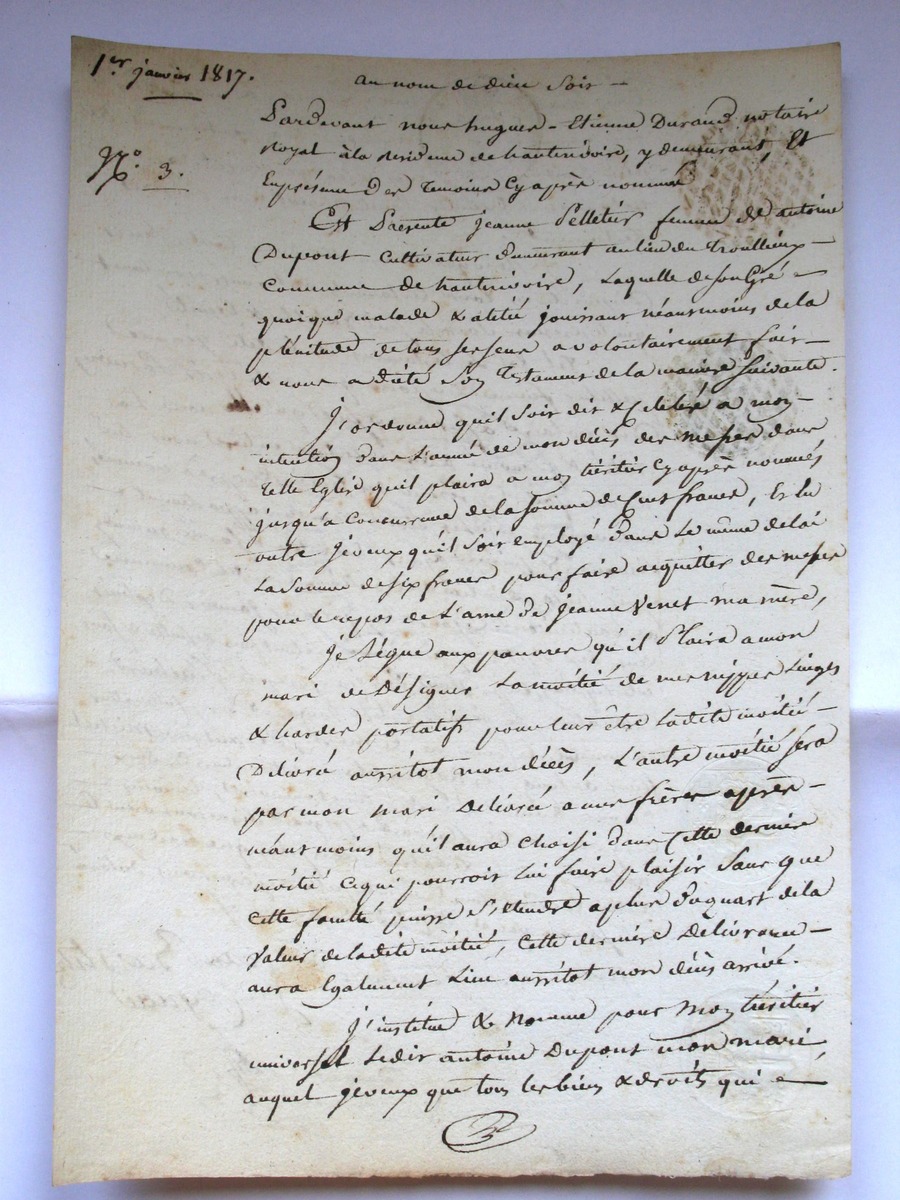 1er janvier 1817.
au nom de dieu soit —
N° 3.
Pardevant nous hugues-Etienne Durand notaire
Royal à la residence de hauterivoire, y demeurant, Et
En présence des temoins cy après nommés
Est Présente jeanne Pelletier femme de antoine
Dupont cultivateur demeurant au lieu du Trouillieux —
commune de hauterivoire, Laquelle de son Gré —
quoique malade & alité jouissant néanmoins de la
plénitude de tous ses sens a volontairement fait —
& nous a dicté son Testament de la maniere suivante.
J'ordonne qu'il soit dit & Celebré a mon —
intention dans L'année de mon décès des messes dans
telle Eglise qu'il plaira a mon héritier cy après nommés
jusqu'a concurrence de la somme de Cent francs, Et En
outre je veux qu'il soit employé dans Le même delai
La somme de six francs pour faire acquitter des messes
pour le repos de L'ame de jeanne Venet ma mère,
Je Lègue aux pauvres qu'il Plaira a mon
mari de Désigner La moitié de mes nippes Linges
& hardes portatifs pour leur être Ladite moitié —
Délivré aussitot mon décès, L'autre moitié sera
par mon mari Délivrée a mes frères après —
néant moins qu'il aura choisi dans Cette dernière
moitié ce qui pourroit lui faire plaisir sans que
cette faculté puisse s'étendre a plus du quart de la
valeur de ladite moitié, cette dernière Délivrance —
aura Egalement Lieu aussitot mon décès arrivé.
J'institue & Nomme pour Mon héritier
universel Ledit antoine Dupont mon mari
auquel je veux que tous les biens & droits qui a —